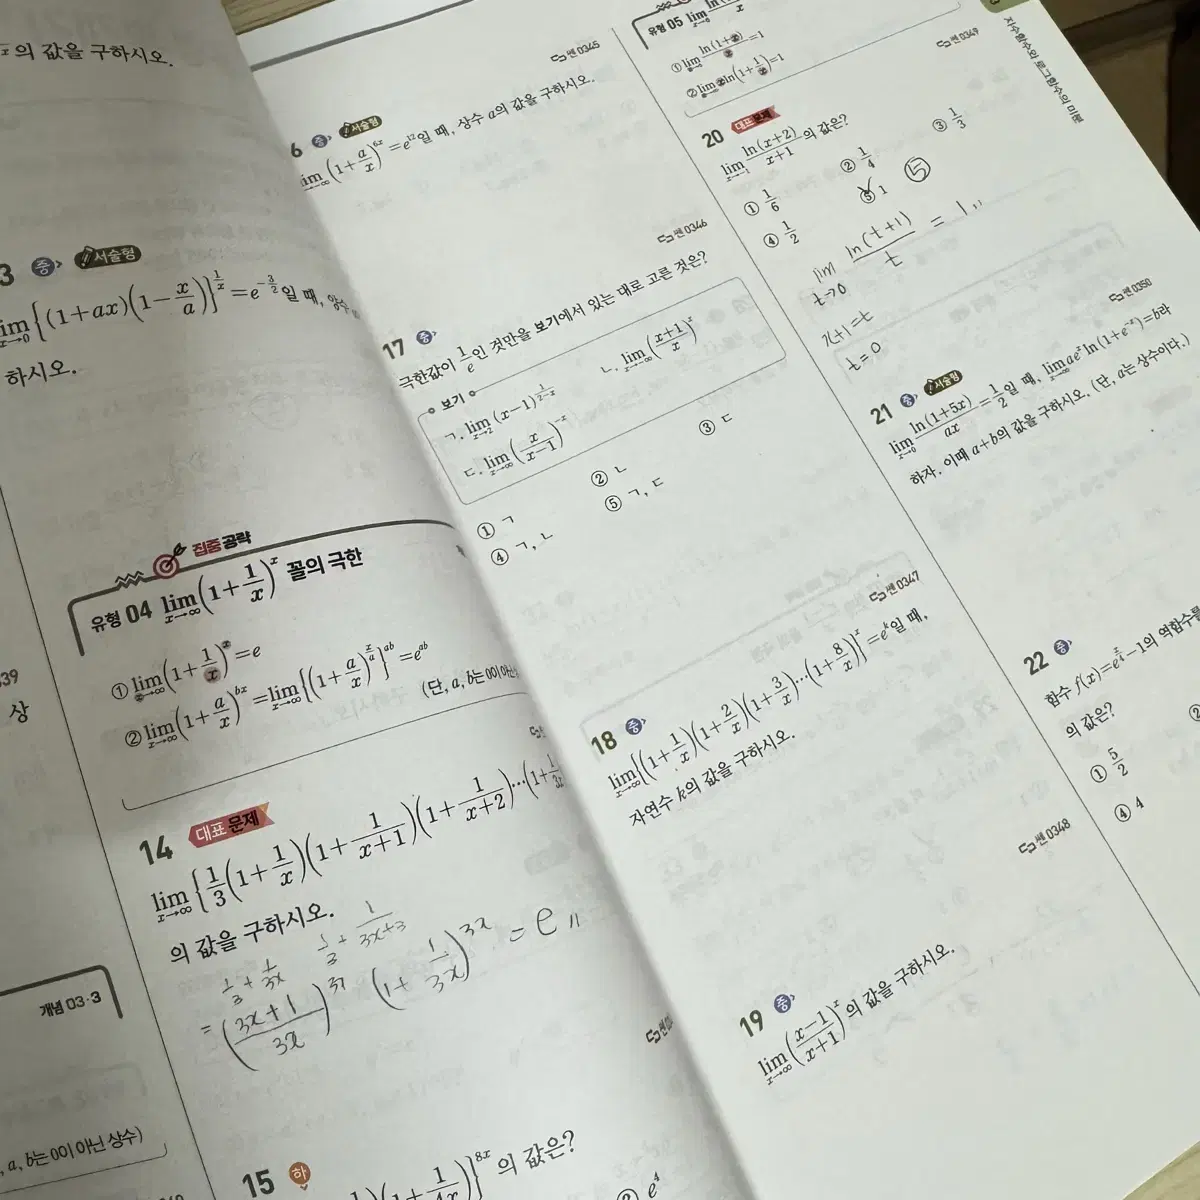 의 값을 구하시오.
3 중 서술형
lim x→0 {(1+ax)(1-x/a)}^(1/x) = e^(-3/2)일 때, 양수
하시오.
39
상
개념 03·3
a, b는 0이 아닌 상수)
집중 공략
유형 04 lim x→∞ (1+1/x)^x 꼴의 극한
① lim (1+1/x)^x = e
② lim x→∞ (1+a/x)^(bx) = lim x→∞ {(1+a/x)^(x/a)}^(ab) = e^(ab)
(단, a, b는 0이 아닌
14 대표 문제
lim x→∞ {1/3(1+1/x)(1+1/(x+1))(1+1/(x+2))…(1+1/3x
의 값을 구하시오.
1/3 + 1/3x 1/3 + 1/(3x+3)
= ((3x+1)/3x)^3x (1+1/3x)^3x = e
15 하
)}^(8x) 의 값은?
② e^4
쎈 0345
6 중 서술형
lim x→∞ (1+a/x)^(6x) = e^12일 때, 상수 a의 값을 구하시오.
쎈 0346
17 중
극한값이 1/e인 것만을 보기에서 있는 대로 고른 것은?
보기
ㄱ. lim x→2 (x-1)^(1/(2-x)) ㄴ. lim x→∞ ((x+1)/x)^x
ㄷ. lim x→∞ (x/(x-1))^(-x)
① ㄱ ② ㄴ ③ ㄷ
④ ㄱ, ㄴ ⑤ ㄱ, ㄷ
쎈 0347
18 중
lim x→∞ {(1+1/x)(1+2/x)(1+3/x)…(1+8/x)}^x = e^k일 때,
자연수 k의 값을 구하시오.
쎈 0348
19 중
lim x→∞ ((x-1)/(x+1))^x의 값을 구하시오.
지수함수와 로그함수의 미분
유형 05 lim x→0
① lim ln(1+x)/x = 1
② lim x ln(1+1/x) = 1
쎈 0349
20 대표 문제
lim x→-1 ln(x+2)/(x+1)의 값은?
① 1/6 ② 1/4 ③ 1/3
④ 1/2 ⑤ 1 ⑤
lim t→0 ln(t+1)/t = 1
x+1=t
t=0
쎈 0350
21 중 서술형
lim x→0 ln(1+5x)/ax = 1/2일 때, lim x→∞ ae^x ln(1+e^(-x))=b라
하자. 이때 a+b의 값을 구하시오. (단, a는 상수이다.)
22 중
함수 f(x)=e^(x/4)-1의 역함수를
의 값은?
① 5/2
④ 4